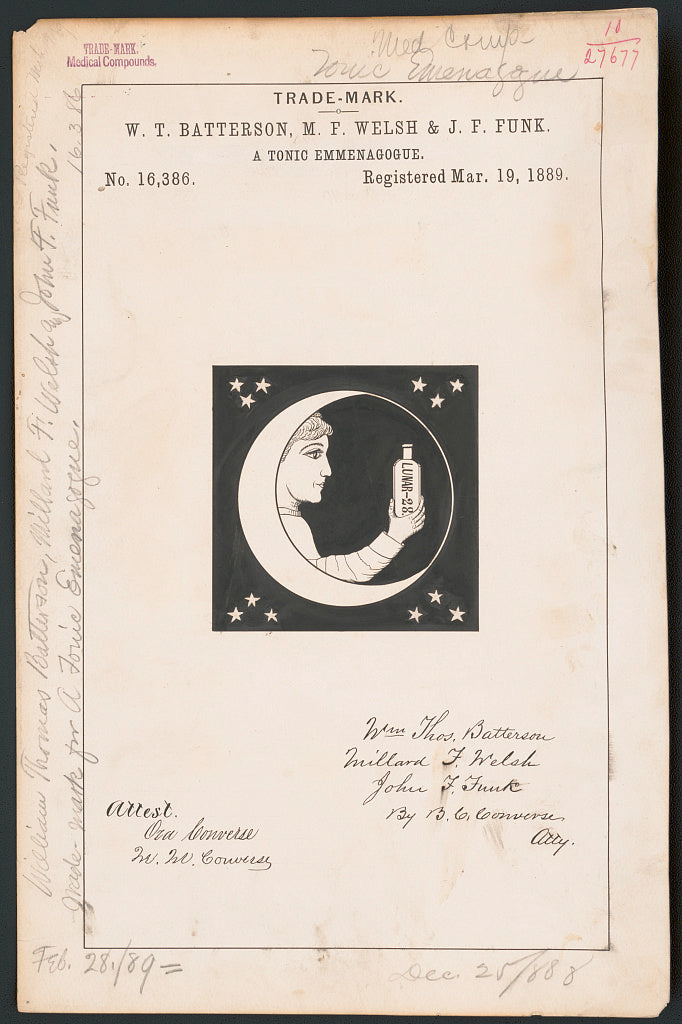 TRADE-MARK.
Medical Compounds.
Med. Comp
Tonic Emenagogue
10
27677
TRADE-MARK.
W. T. BATTERSON, M. F. WELSH & J. F. FUNK.
A TONIC EMMENAGOGUE.
No. 16,386.
Registered Mar. 19, 1889.
William Thomas Batterson, Millard F. Welsh & John F. Funk.
Trade-mark for A Tonic Emenagogue.
16.386
Registered
LUNAR-28.
Wm Thos. Batterson
Millard F. Welsh
John F. Funk
By B. C. Converse
Atty.
Attest.
Ora Converse
W. W. Converse
Feb. 28./89
Dec. 25/888